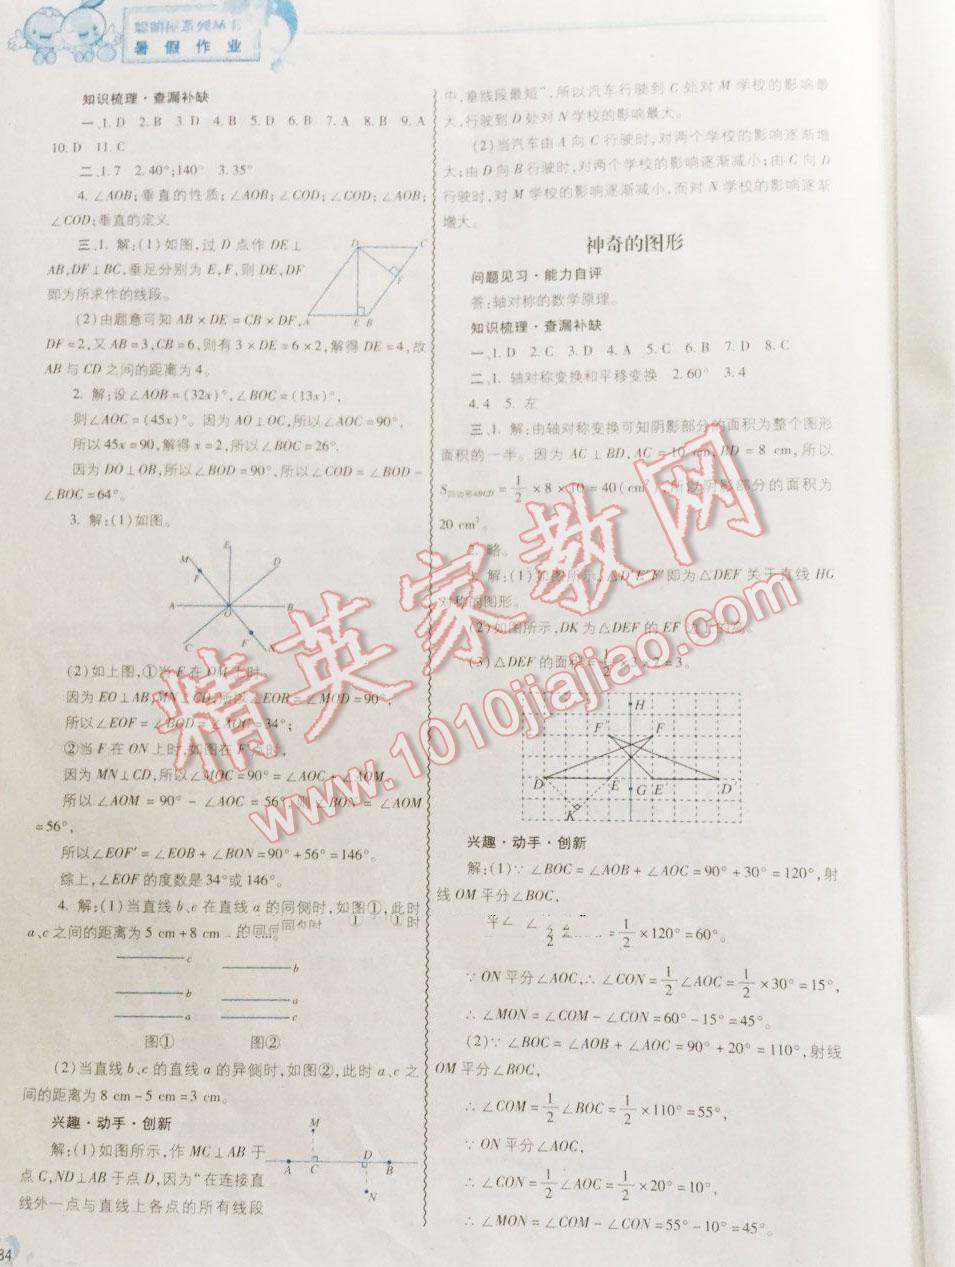 暑假作业
知识梳理·查漏补缺
一、1. D 2. B 3. D 4. B 5. D 6. B 7. A 8. B 9. A
10. D 11. C
二、1. 7 2. 40°;140° 3. 35°
4. ∠AOB;垂直的性质;∠COD;∠COD;∠AOB;
∠COD;垂直的定义
三、1. 解:(1)如图,过 D 点作 DE⊥
AB,DF⊥BC,垂足分别为 E,F,则 DE,DF
即为所求作的线段。
(2)由题意可知 AB×DE=CB×DF,
DF=2,又 AB=3,CB=6,则有 3×DE=6×2,解得 DE=4,故
AB 与 CD 之间的距离为 4。
2. 解:设∠AOB=(32x)°,∠BOC=(13x)°,
则∠AOC=(45x)°。因为 AO⊥OC,所以∠AOC=90°,
所以 45x=90,解得 x=2,所以∠BOC=26°.
因为 DO⊥OB,所以∠BOD=90°,所以∠COD=∠BOD-
∠BOC=64°。
3. 解:(1)如图。
(2)如上图,①当 F 在 OM 上时,
因为 EO⊥AB,MN⊥CD,所以∠EOB=∠MOD=90°,
所以∠EOF=∠BOD=∠AOC=34°;
②当 F 在 ON 上时,如图在 F′点时,
因为 MN⊥CD,所以∠MOC=90°=∠AOC+∠AOM,
所以∠AOM=90°-∠AOC=56°,则∠BON=∠AOM
=56°,
所以∠EOF′=∠EOB+∠BON=90°+56°=146°。
综上,∠EOF 的度数是 34°或 146°。
4. 解:(1)当直线 b、c 在直线 a 的同侧时,如图①,此时
a、c 之间的距离为 5 cm+8 cm
图① 图②
(2)当直线 b、c 的直线 a 的异侧时,如图②,此时 a、c 之
间的距离为 8 cm-5 cm=3 cm。
兴趣·动手·创新
解:(1)如图所示,作 MC⊥AB 于
点 C,ND⊥AB 于点 D,因为“在连接直
线外一点与直线上各点的所有线段
84
中,垂线段最短”,所以汽车行驶到 C 处对 M 学校的影响最
大,行驶到 D 处对 N 学校的影响最大。
(2)当汽车由 A 向 C 行驶时,对两个学校的影响逐渐增
大;由 D 向 B 行驶时,对两个学校的影响逐渐减小;由 C 向 D
行驶时,对 M 学校的影响逐渐减小,而对 N 学校的影响逐渐
增大。
神奇的图形
问题见习·能力自评
答:轴对称的数学原理。
知识梳理·查漏补缺
一、1. D 2. C 3. D 4. A 5. C 6. B 7. D 8. C
二、1. 轴对称变换和平移变换 2. 60° 3. 4
4. 4 5. 左
三、1. 解:由轴对称变换可知阴影部分的面积为整个图形
面积的一半。因为 AC⊥BD,AC=10 cm,BD=8 cm,所以
S四边形ABCD=1/2×8×10=40(cm²),所以阴影部分的面积为
20 cm²。
2. 略。
解:(1)如图所示,△D′E′F′即为△DEF 关于直线 HG
对称的图形。
(2)如图所示,DK 为△DEF 的 EF 边上的高。
(3)△DEF 的面积=1/2×3×2=3。
兴趣·动手·创新
解:(1)∵∠BOC=∠AOB+∠AOC=90°+30°=120°,射
线 OM 平分∠BOC,
=1/2×120°=60°。
∵ON 平分∠AOC,∴∠CON=1/2∠AOC=1/2×30°=15°,
∴∠MON=∠COM-∠CON=60°-15°=45°。
(2)∵∠BOC=∠AOB+∠AOC=90°+20°=110°,射线
OM 平分∠BOC,
∴∠COM=1/2∠BOC=1/2×110°=55°,
∵ON 平分∠AOC,
∴∠CON=1/2∠AOC=1/2×20°=10°,
∴∠MON=∠COM-∠CON=55°-10°=45°。
精英家教网
www.1010jiajiao.com